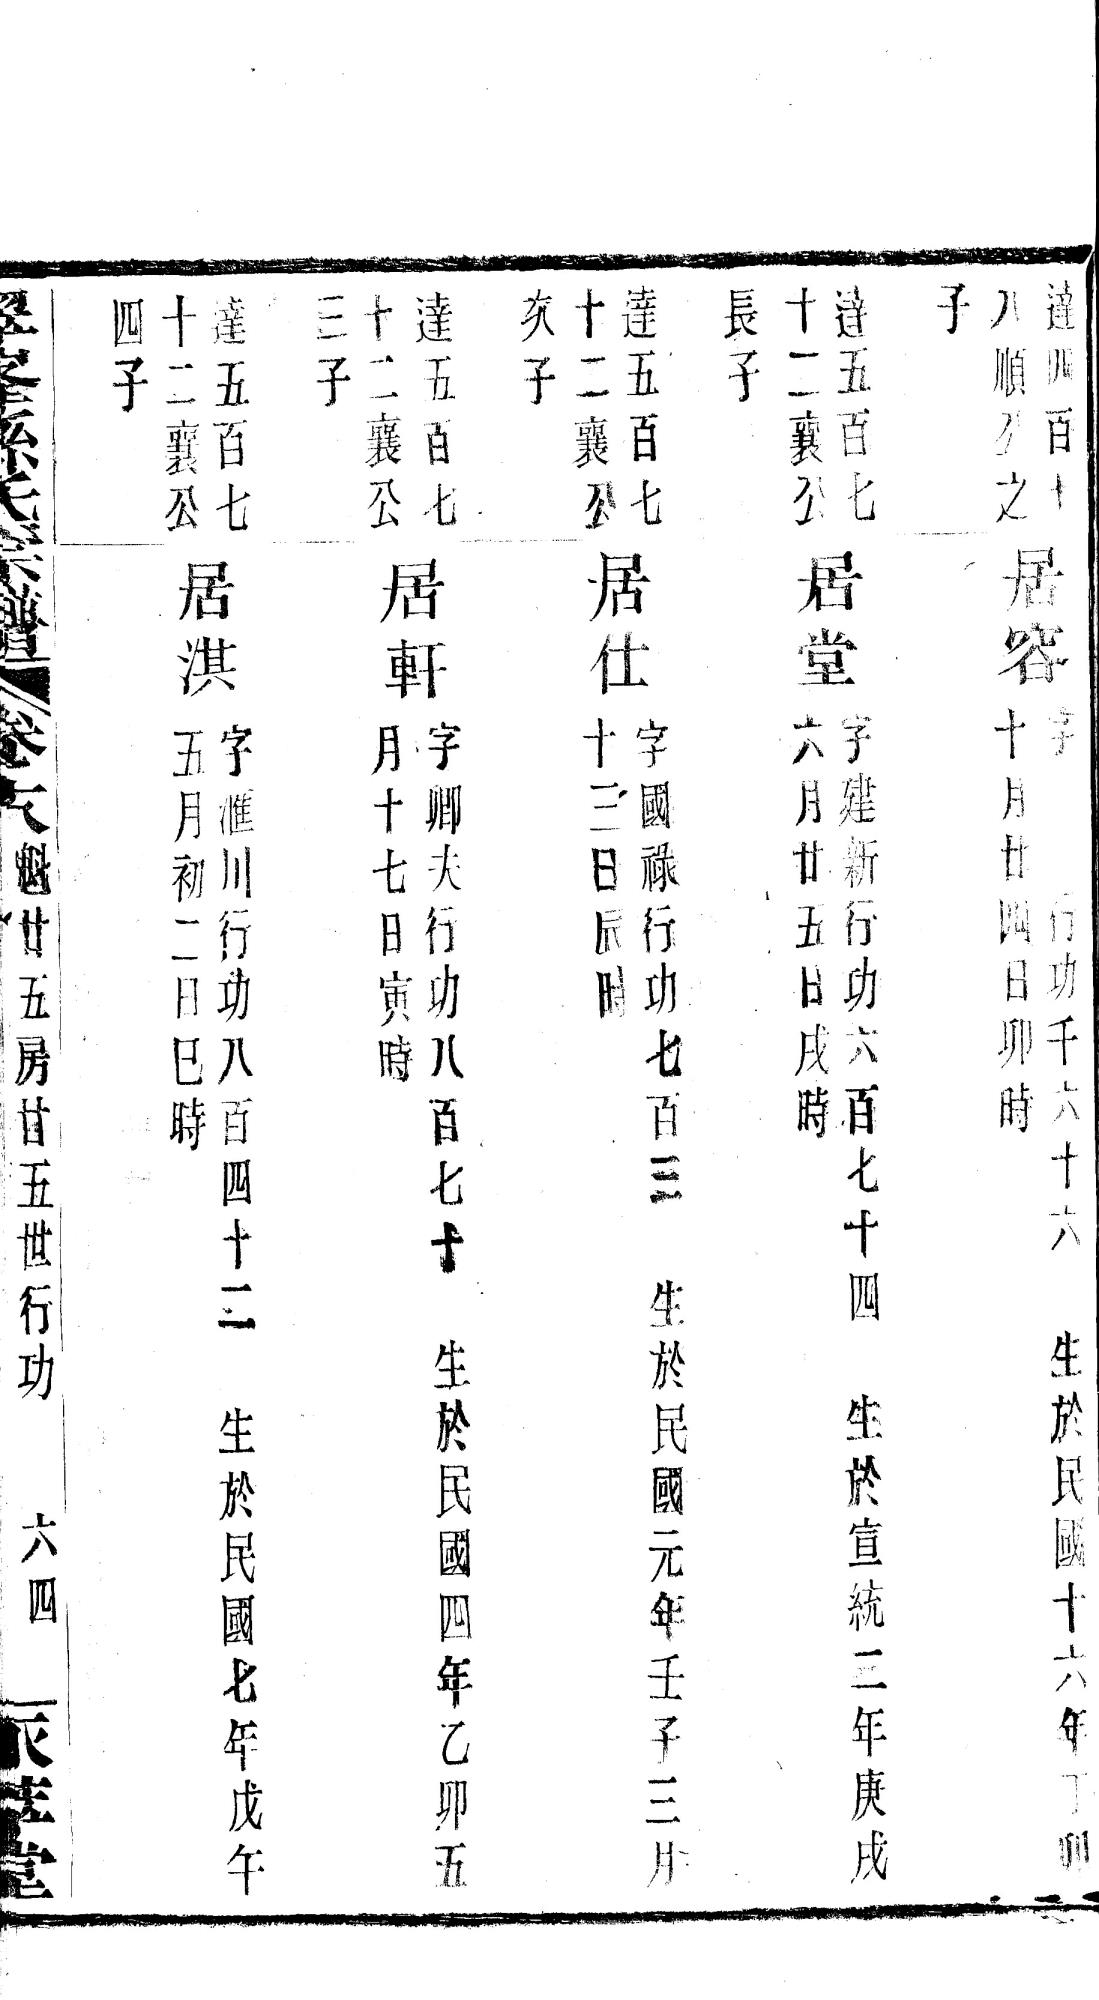 達四百十
八順公之
子
居容
字 行功千六十六 生於民國十六年丁卯
十月廿四日卯時
達五百七
十二襄公
長子
居堂
字建新行功六百七十四 生於宣統二年庚戌
六月廿五日戌時
達五百七
十二襄公
次子
居仕
字國祿行功七百三 生於民國元年壬子三月
十三日辰時
達五百七
十二襄公
三子
居軒
字卿夫行功八百七十 生於民國四年乙卯五
月十七日寅時
達五百七
十二襄公
四子
居淇
字滙川行功八百四十二 生於民國七年戊午
五月初二日巳時
孫氏宗譜 卷十六 魁廿五房廿五世行功 六四 堂